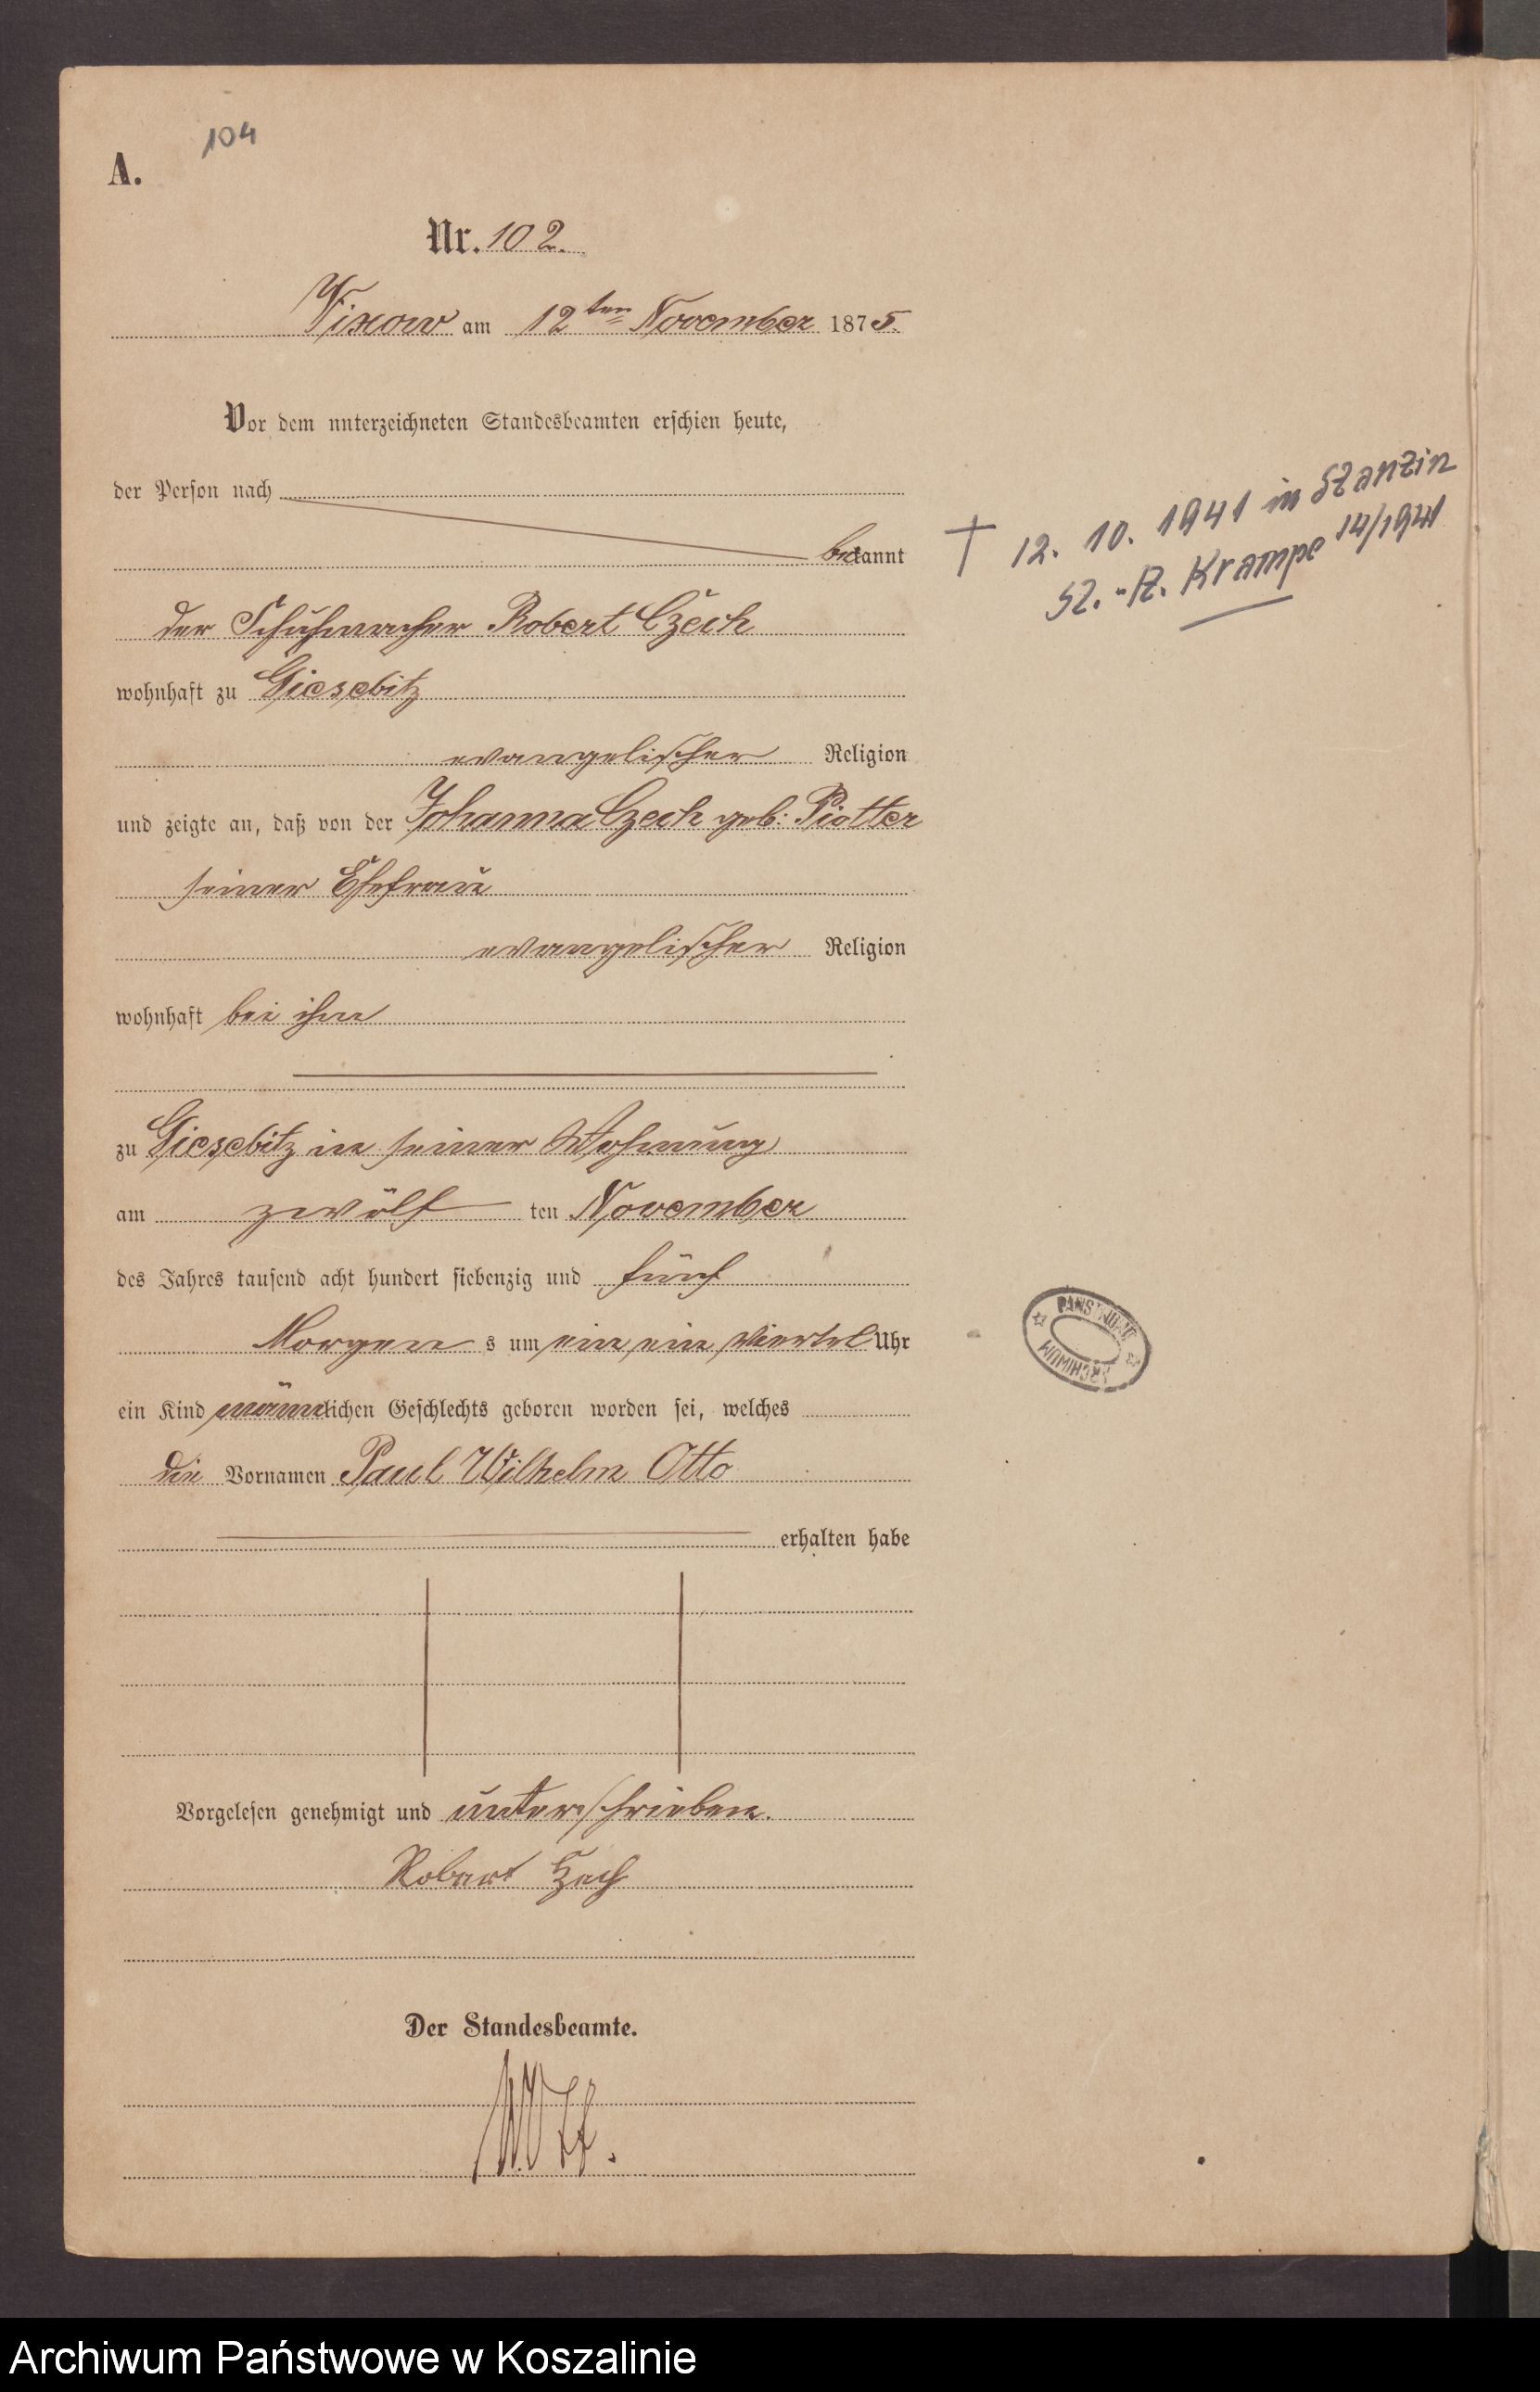 104
A.
Nr. 102.
Vixow am 12ten November 1875.
Vor dem unterzeichneten Standesbeamten erschien heute,
der Person nach
bekannt
der Schuhmacher Robert Czech
wohnhaft zu Giesebitz
evangelischer Religion
und zeigte an, daß von der Johanna Czech geb: Piotter
seiner Ehefrau
evangelischer Religion
wohnhaft bei ihm
zu Giesebitz in seiner Wohnung
am zwölf ten November
des Jahres tausend acht hundert siebenzig und fünf
Morgen s um ein ein Viertel Uhr
ein Kind männlichen Geschlechts geboren worden sei, welches
die Vornamen Paul Wilhelm Otto
erhalten habe
Vorgelesen genehmigt und unterschrieben.
Robert Czech
Der Standesbeamte.
† 12. 10. 1941 in Stanzin
St.-A. Krampe 14/1941
ARCHIWUM PAŃSTWOWE
Archiwum Państwowe w Koszalinie